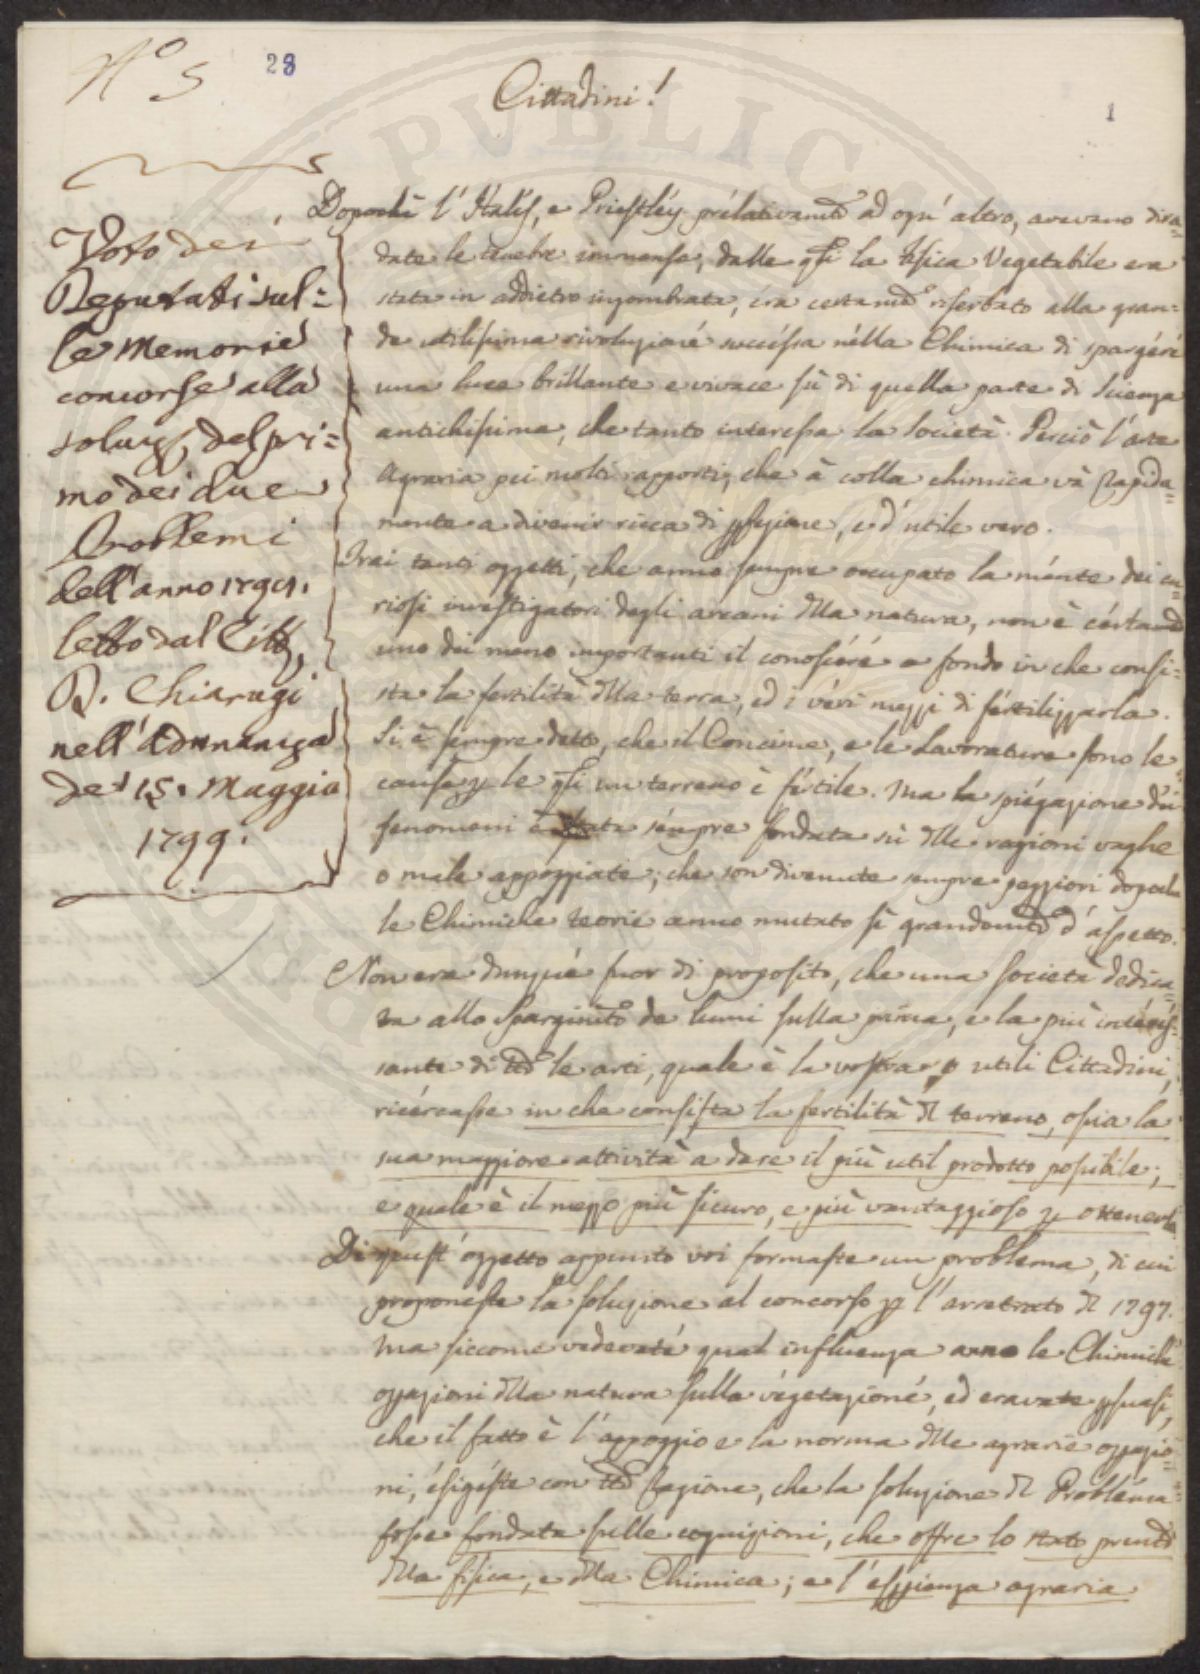 N.o 5
28
1
Cittadini!
Voto dei
Deputati sul=
le Memorie
concorse alla
soluz. del pri=
mo dei due
Problemi
dell'anno 1794.
letto dal Citt.
D. Chiarugi
nell'Adunanza
de' 15. Maggio
1799.
Dopochè l'Hales, e Priestley prelativamte ad ogn' altro, avevano dira=
date le tenebre immense, dalle qli la fisica Vegetabile era
stata in addietro ingombrata, era certamte riserbato alla gran=
de utilissima rivoluzione successa nella Chimica di spargere
una luce brillante e vivace sù di quella parte di Scienza
antichissima, che tanto interessa la Società. Perciò l'arte
Agraria pei molti rapporti, che à colla chimica và rapida=
mente a divenir ricca di pfezione, e d'utile vero.
Trai tanti oggetti, che anno sempre occupato la mente dei cu=
riosi investigatori degli arcani dlla natura, non è certamte
uno dei meno importanti il conoscere a fondo in che consi=
sta la fertilità dlla terra, ed i veri mezzi di fertilizzarla.
Si è sempre detto, che il Concime, e le Lavorature sono le
cause p le qli un terreno è fertile. Ma la spiegazione dei
fenomeni è stata sempre fondata sù dlle ragioni vaghe
o male appoggiate; che son divenute sempre peggiori dopochè
le Chimiche teorie anno mutato sì grandemte d'aspetto.
Non era dunque fuor di proposito, che una società dedica=
ta allo Spargimto de lumi sulla prima, e la più interes=
sante di tte le arti, quale è la vostra, o utili Cittadini,
ricercasse in che consista la fertilità dl terreno, ossia la
sua maggiore attività a dare il più util prodotto possibile;
e quale è il mezzo più sicuro, e più vantaggioso p ottenerla
Di quest'oggetto appunto voi formaste un problema, di cui
proponeste la soluzione al concorso p l'arretrato dl 1797.
Ma siccome vedevate qual influenza anno le Chimiche
oprazioni dlla natura sulla vegetazione, ed eravate psuasi,
che il fatto è l'appoggio e la norma dlle agrarie oprazio=
ni, esigeste con tta ragione, che la soluzione dl Problema
fosse fondata sulle cognizioni, che offre lo stato presnte
dlla fisica, e dlla Chimica; e l'espienza agraria